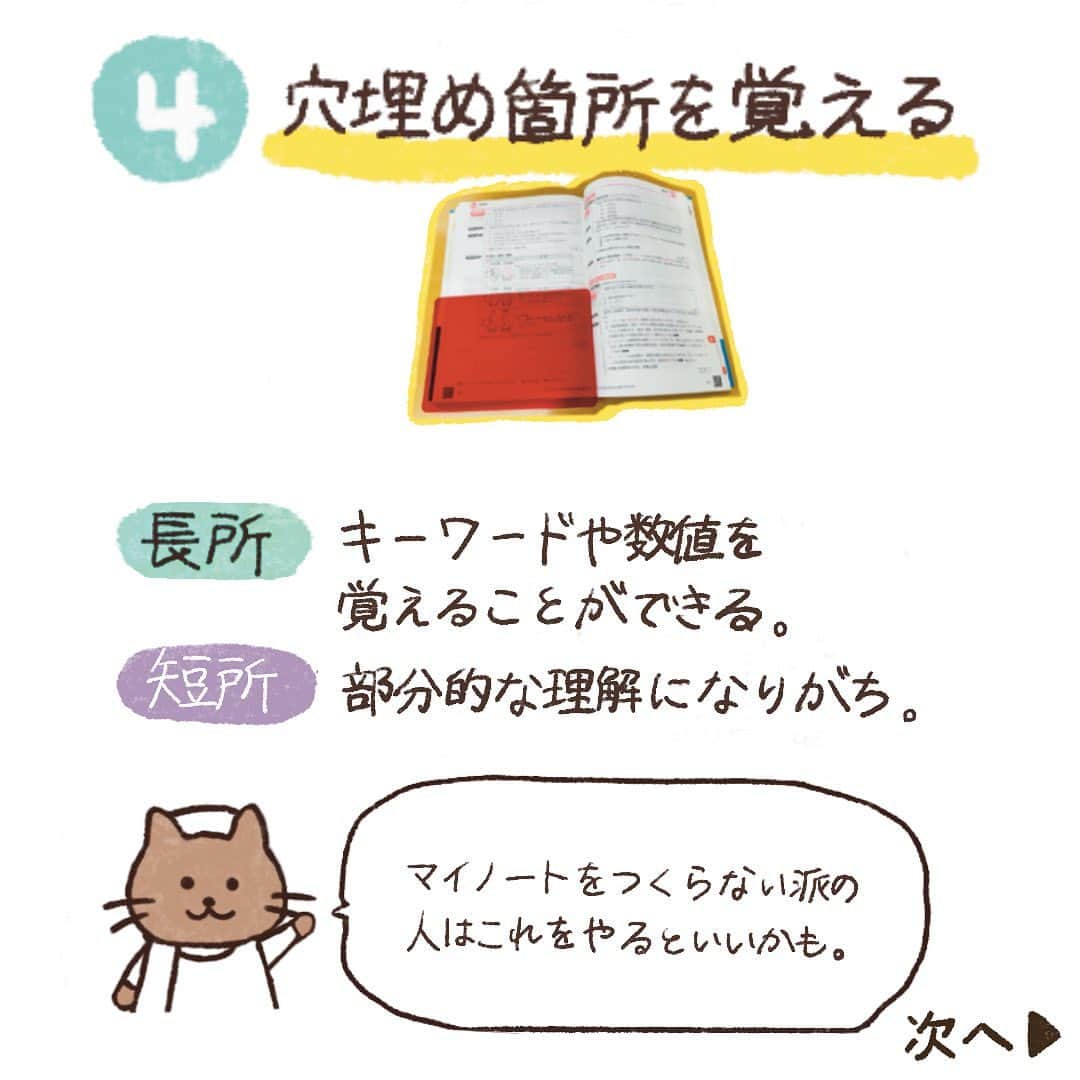 4 穴埋め箇所を覚える
長所 キーワードや数値を
覚えることができる。
短所 部分的な理解になりがち。
マイノートをつくらない派の
人はこれをやるといいかも。
次へ▶